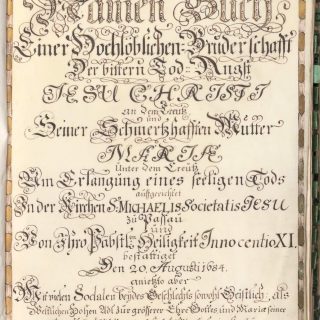 Namen Buch
Einer Hochlöblichen Bruderschafft
Der bittern Tod-Angst
JESU CHRISTI
an dem Creutz
und
Seiner Schmertzhafften Mutter
MARIÆ
Unter dem Creutz
Um Erlangung eines seeligen Tods
auffgerichtet
In der Kirchen S. MICHAELIS Societatis IESU
zu Passau
und
Von Ihro Päbstl. Heiligkeit Innocentio XI.
bestättiget
Den 20 Augusti 1684.
anietzo aber
Mit vielen Sodalen beydes Geschlechts sowohl Geistlich, als
Weltlichen Hohen Adl zur grösserer Ehre Gottes und Mariæ seiner